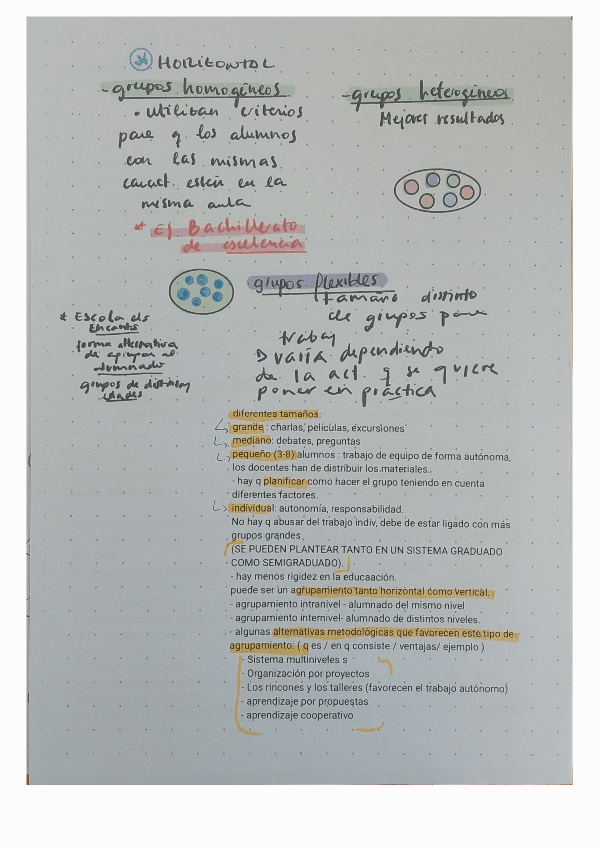 * HORIZONTAL
- grupos homogéneos
• utilizan criterios
para q los alumnos
con las mismas
caract. estén en la
misma aula
* Ej. Bachillerato
de exelencia
- grupos heterogéneos
Mejores resultados
grupos flexibles
tamaño distinto
de grupos para
trabaj
varía dependiento
de la act. q se quiere
poner en práctica
* Escola els
Encants
forma alternativa
de agrupar al
alumnado
grupos de distintas
edades
diferentes tamaños:
grande : charlas, películas, excursiones
mediano: debates, preguntas
pequeño (3-8) alumnos : trabajo de equipo de forma autónoma,
los docentes han de distribuir los materiales..
- hay q planificar como hacer el grupo teniendo en cuenta
diferentes factores.
individual: autonomía, responsabilidad.
No hay q abusar del trabajo indiv, debe de estar ligado con más
grupos grandes
(SE PUEDEN PLANTEAR TANTO EN UN SISTEMA GRADUADO
COMO SEMIGRADUADO).
- hay menos rigidez en la educaación.
puede ser un agrupamiento tanto horizontal como vertical.
- agrupamiento intranivel - alumnado del mismo nivel
- agrupamiento internivel- alumnado de distintos niveles.
- algunas alternativas metodológicas que favorecen este tipo de
agrupamiento: ( q es / en q consiste / ventajas/ ejemplo )
- Sistema multiniveles s
- Organización por proyectos
- Los rincones y los talleres (favorecen el trabajo autónomo)
- aprendizaje por propuestas
- aprendizaje cooperativo